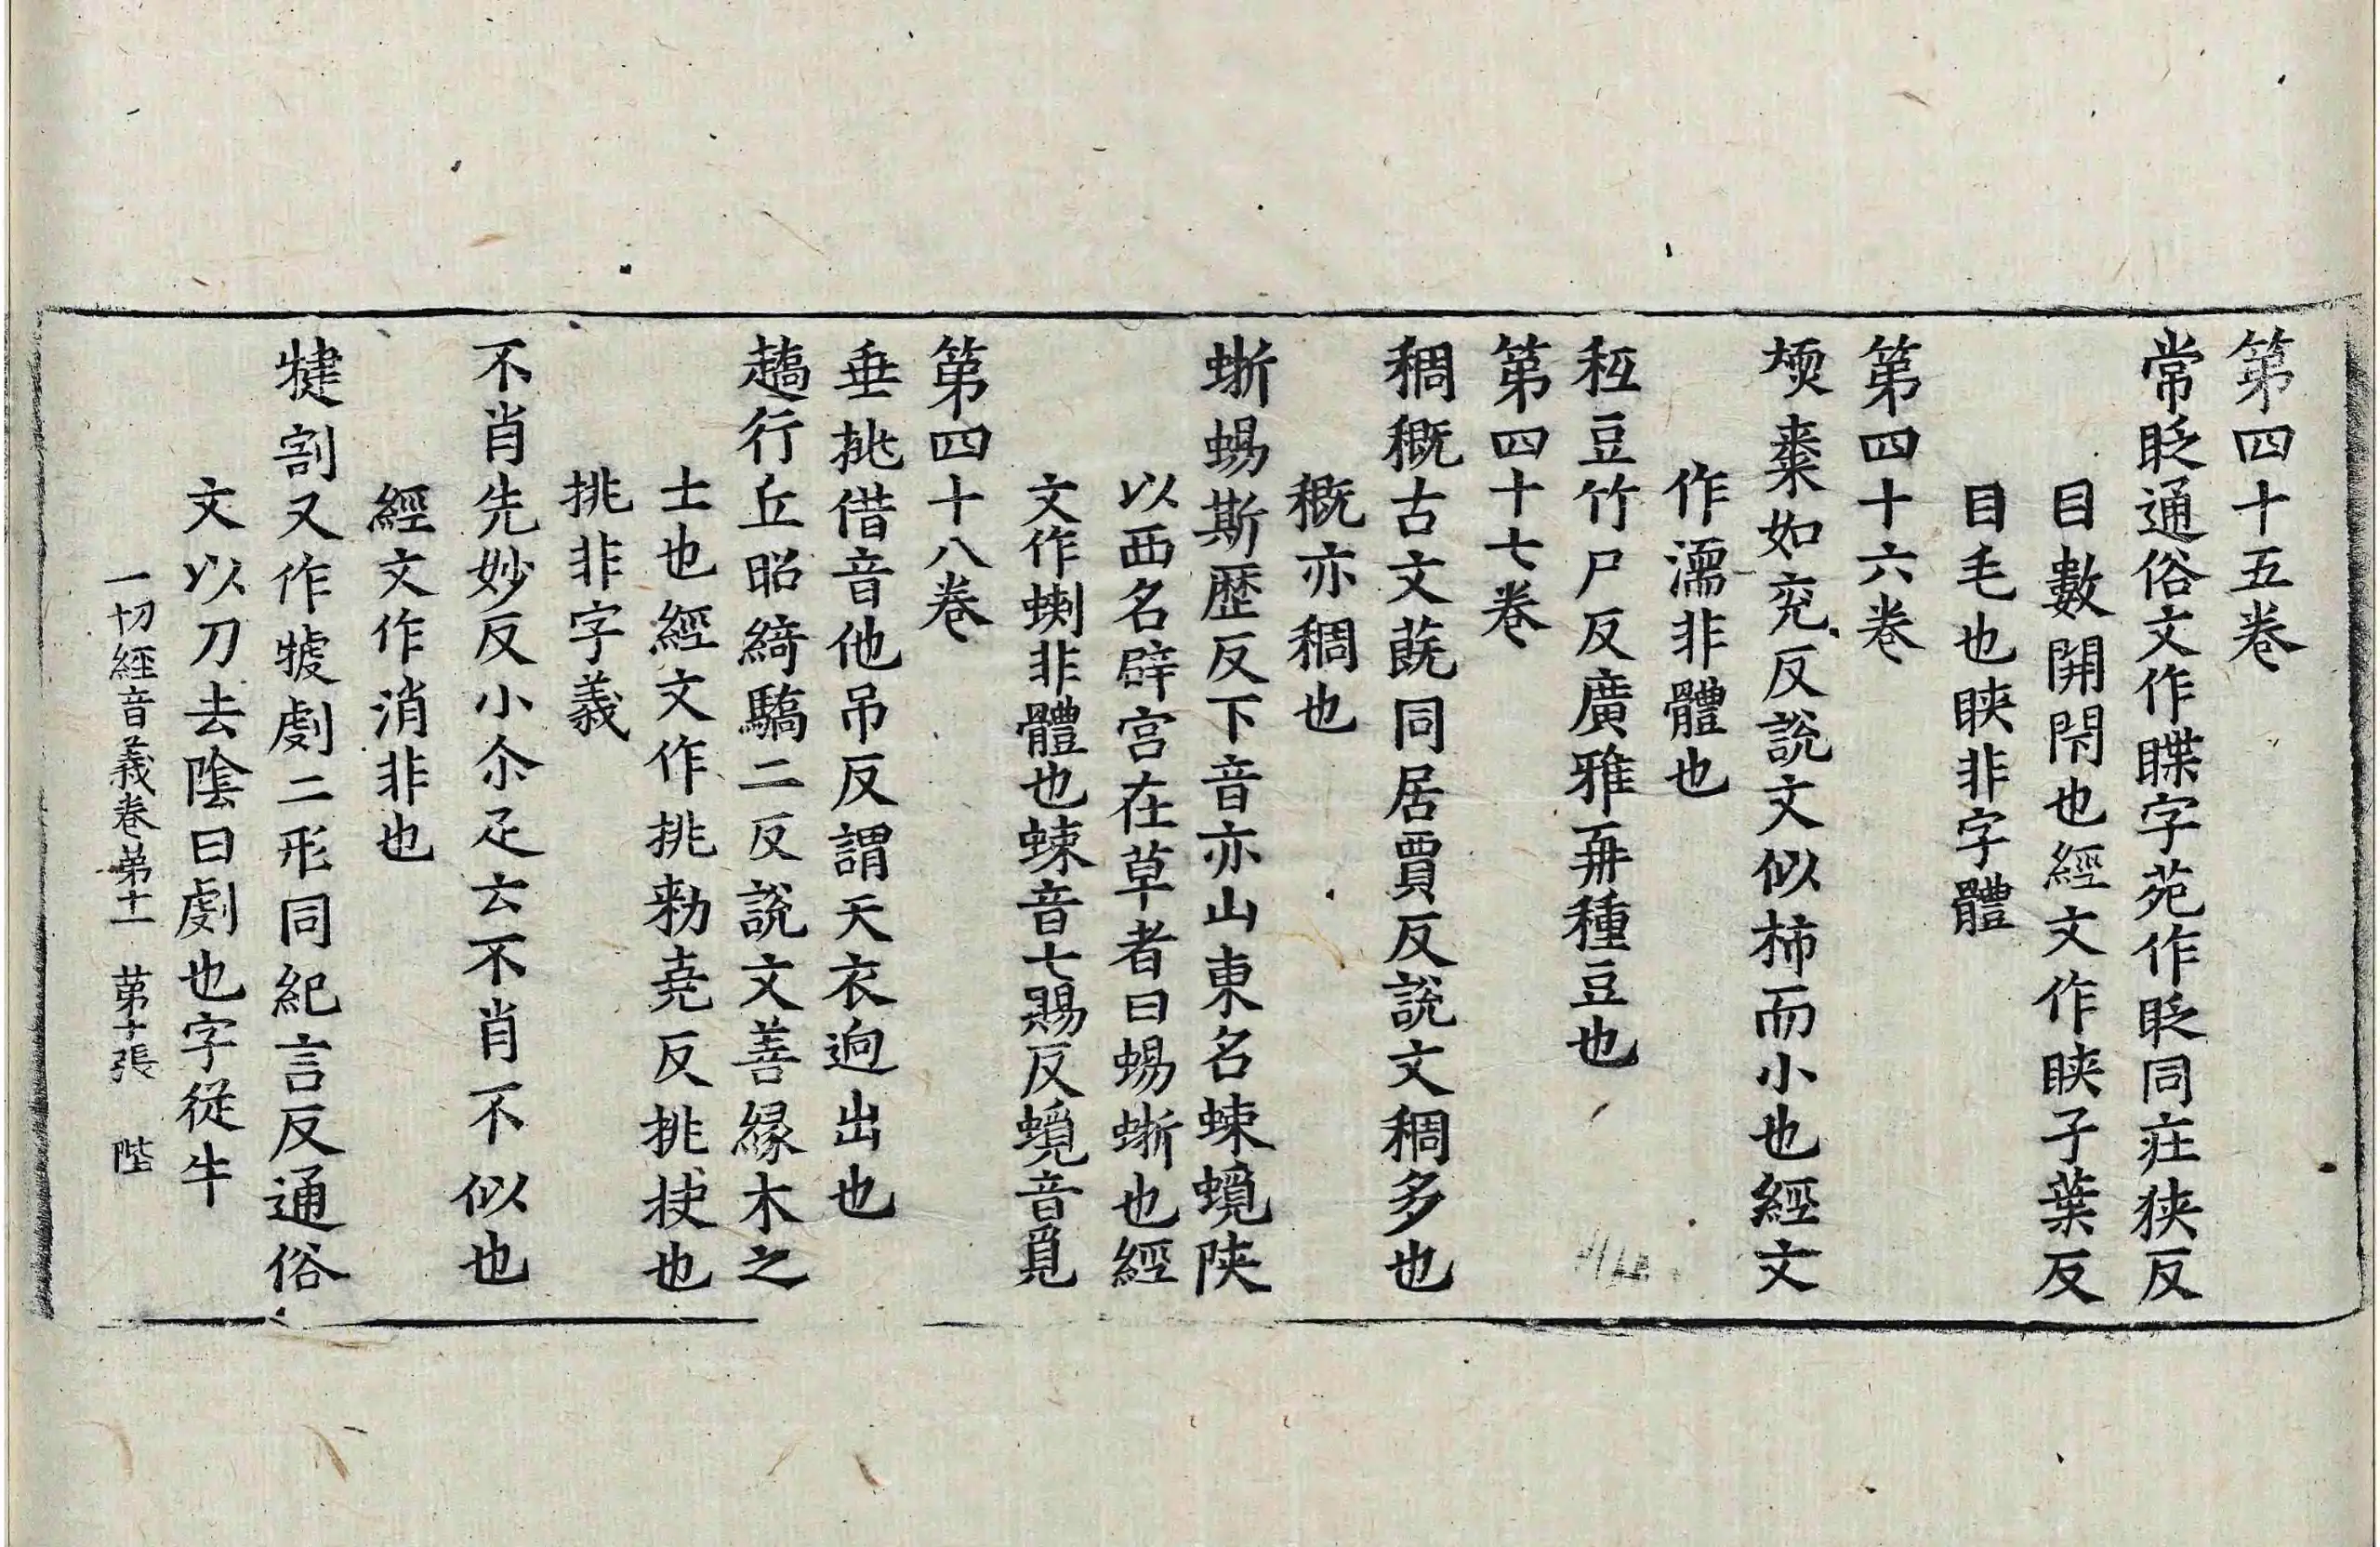 第四十五卷
常眨通俗文作䁋字苑作眨同疘狹反
目數開閇也經文作䀹子葉反
目毛也䀹非字體
第四十六卷
㮕棗如兖反說文似柿而小也經文
作濡非體也
秪豆竹尸反廣雅再種豆也
第四十七卷
稠穊古文蔇同居賈反說文稠多也
穊亦稠也
蜥蜴斯歷反下音亦山東名蝀蜆陝
以西名辟宫在草者曰蜴蜥也經
文作蝲非體也蝀音七賜反蜆音覓
第四十八卷
垂挑借音他吊反謂天衣逈出也
趫行丘昭綺驕二反說文善緣木之
士也經文作挑勑堯反挑抉也
挑非字義
不肖先妙反小尒疋云不肖不似也
經文作消非也
犍割又作㹔劇二形同紀言反通俗
文以刀去陰曰劇也字從牛
一切經音義卷第十一 第十張 陛